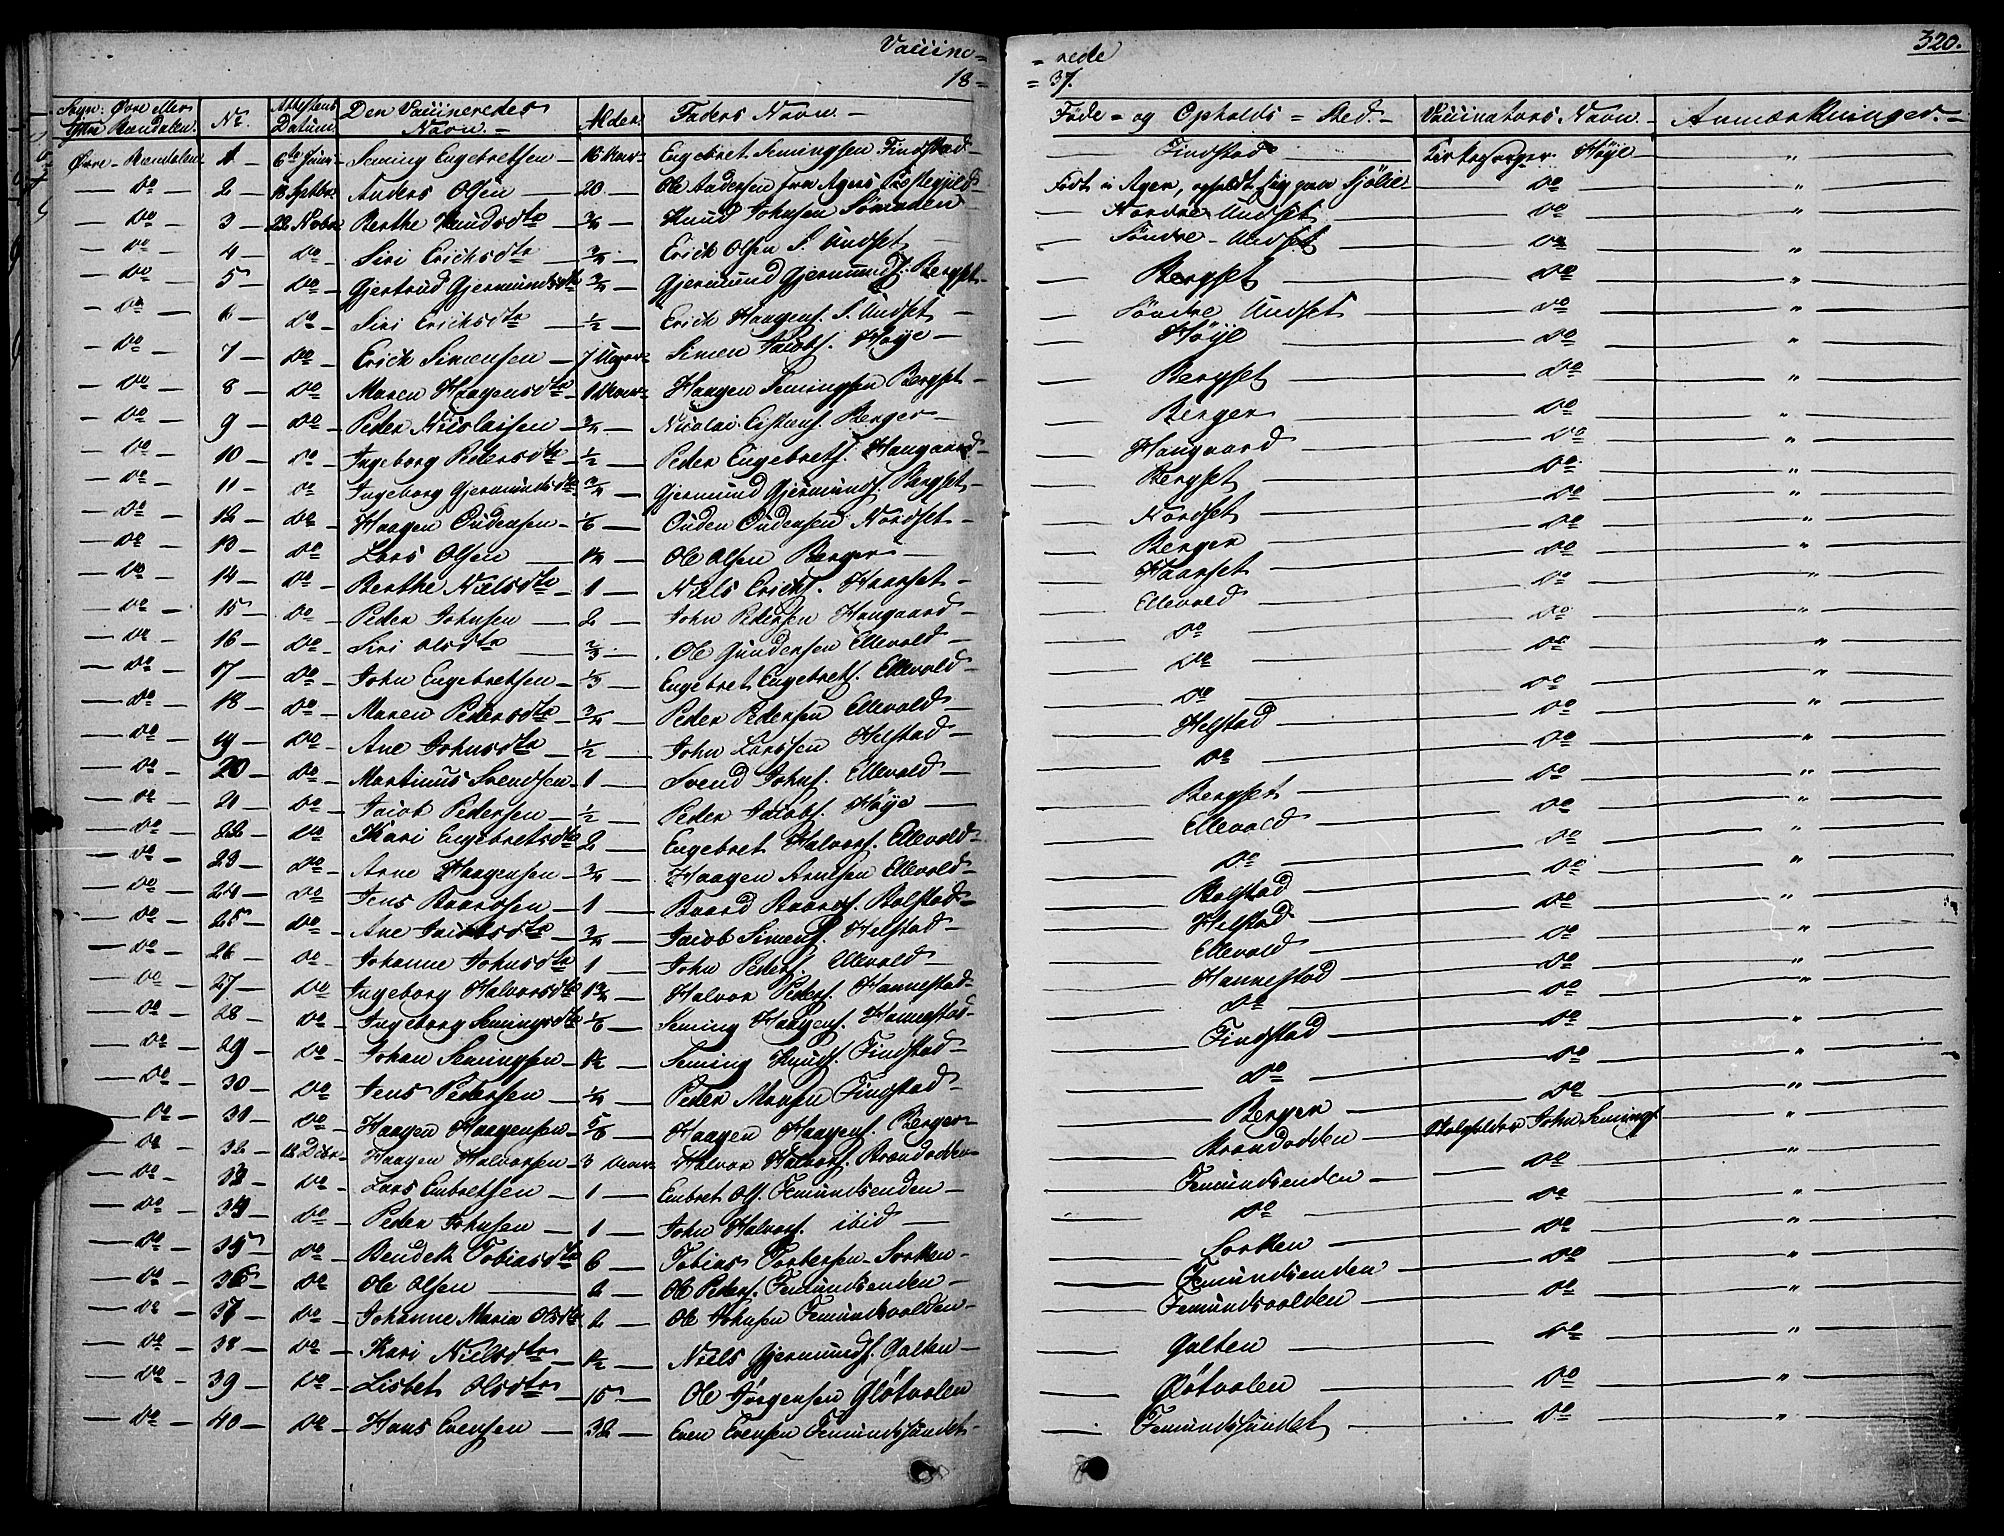 Vaccine= =rede 320.
18= =37.
Sogn: Øvre eller Ytre Rendalen. No. Attestens Datum Den Vaccineredes Navn. Alder. Faders Navn. Føde= og Opholds=Sted. Vaccinators Navn. Anmærkninger.
Øvre-Rendalen 1 6te Juni Seming Engebretsen 16 Engebret Semingsen Findstad Findstad Kirkesanger Høye "
do 2 18 Septbr Anders Olsen 20 Ole Andersen fra Agers Præstegjeld Født i Ager, opholdt sig paa Sjölie do "
do 3 22 Novbr Berthe Knudsdtr 3/4 Knud Johnsen Nordre Undset do "
do 4 do Siri Erichsdtr 3/4 Erich Olsen S. Undset Søndre Undset do "
do 5 do Gjertrud Gjermundsdtr 3/4 Gjermund Gjermunds. Bergset Bergset do "
do 6 do Siri Erichsdtr 1/2 Erich Haagens. S. Undset Søndre Undset do "
do 7 do Erich Simensen 7 Uger Simen Jacobs. Høye Høye do "
do 8 do Maren Haagensdtr 1 Haagen Semingsen Bergset Bergset do "
do 9 do Peder Nicolaisen 3/4 Nicolai Berger Berger do "
do 10 do Ingeborg Pedersdtr 1/2 Peder Engebrets. Haugaard Haugaard do "
do 11 do Ingeborg Gjermundsdtr 3/4 Gjermund Gjermunds. Bergset Bergset do "
do 12 do Haagen Oudensen 1/6 Ouden Oudensen Nordset Nordset do "
do 13 do Lars Olsen 1 1/2 Ole Olsen Berger Berger do "
do 14 do Berthe Nielsdtr 1 Niels Erichs. Haarset Haarset do "
do 15 do Peder Johnsen 2 John Pedersen Haugaard Ellevold do "
do 16 do Siri Olsdtr 2/3 Ole Gundersen Ellevold do do "
do 17 do John Engebretsen 1/3 Engebret Engebrets. Ellevold do do "
do 18 do Maren Pedersdtr 3/4 Peder Pedersen Ellevold do do "
do 19 do Ane Johnsdtr 1/2 John Larssen Helstad Helstad do "
do 20 do Martinus Svendsen 1 Svend Johns. Ellevold do do "
do 21 do Jacob Pedersen 1/2 Peder Jacobs. Høye Bergset do "
do 22 do Kari Engebretsdtr 2 Engebret Halvors. Ellevold Ellevold do "
do 23 do Arne Haagensen 3/4 Haagen Arnesen Ellevold do do "
do 24 do Jens Baardsen 1 Baard Baards. Bolstad Bolstad do "
do 25 do Ane Jacobsdtr 3/4 Jacob Simens. Helstad Helstad do "
do 26 do Johanne Johnsdtr 1 John Peders. Ellevold Ellevold do "
do 27 do Ingeborg Halvorsdtr 1 3/4 Halvor Peders. Hannestad Hannestad do "
do 28 do Ingeborg Semingsdtr 1/6 Seming Haagens. Hannestad do do "
do 29 do Johan Semingsen 1 1/2 Seming Knuds. Findstad Findstad do "
do 30 do Jens Pedersen 1/4 Peder Monsen Findstad do do "
do 31 do Haagen Haagensen 5/6 Haagen Haagens. Berger Berger do "
do 32 18 Dcbr Haagen Halvorsen 3 Halvor Halvors. Brandodden Brandodden John Semings. "
do 33 do Lars Embretsen 1 Embret Ols. Femundsenden Femundsenden do "
do 34 do Peder Johnsen 1 John Halvors. ibid do do "
do 35 do Bendek Tobiasdtr 6 Tobias Torkersen Sorken Sorken do "
do 36 do Ole Olsen 2 Ole Peders. Femundsenden Femundsenden do "
do 37 do Johanne Maria Olsdtr 2 Ole Johnsen Femundsvolden Femundsvolden do "
do 38 do Kari Nielsdtr 1 1/2 Niels Gjermunds. Galten Galten do "
do 39 do Lisbet Olsdtr 15 Ole Jörgensen Gløtvolen Gløtvolen do "
do 40 do Hans Evensen 32 Even Evensen Femundssundet Femundssundet do "